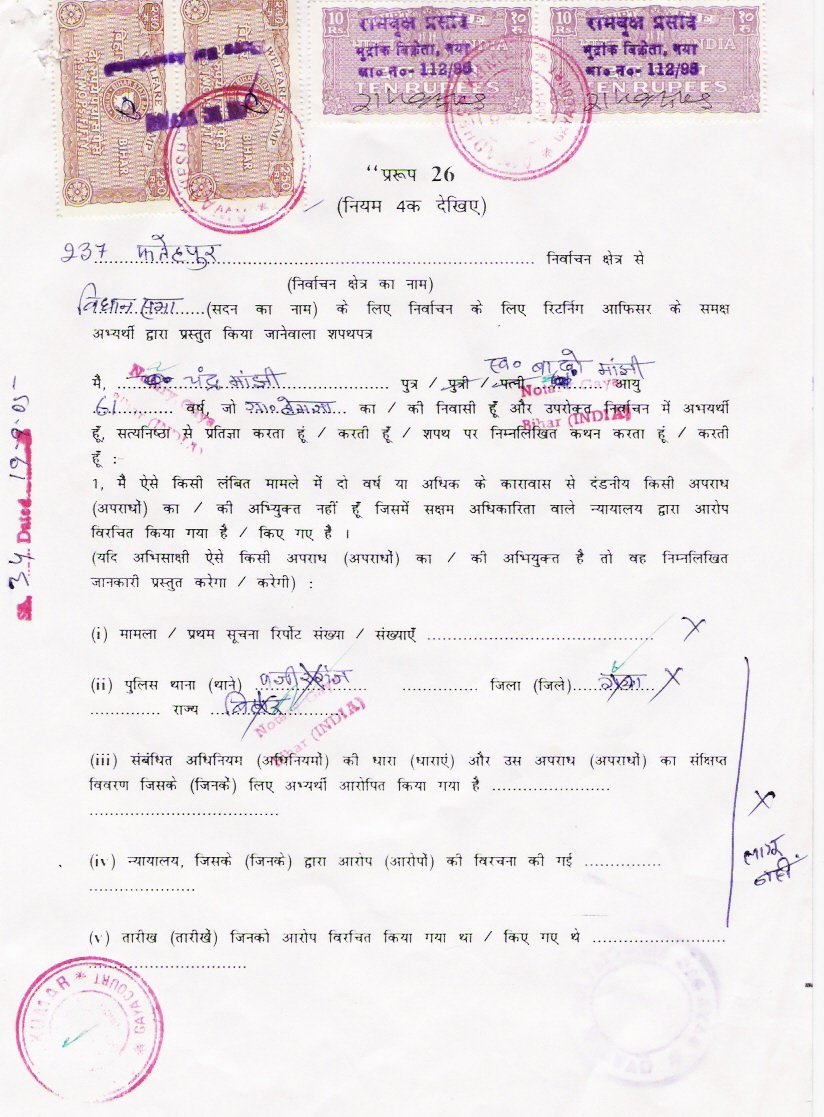 10 Rs. १० रु.
रामवृक्ष प्रसाद
मुद्रांक विक्रेता, गया
ला० न०- 112/95
TEN RUPEES
10 Rs. १० रु.
रामवृक्ष प्रसाद
मुद्रांक विक्रेता, गया
ला० न०- 112/95
TEN RUPEES
WELFARE STAMP
BIHAR
“प्ररूप 26
(नियम 4क देखिए)
237 फतेहपुर निर्वाचन क्षेत्र से
(निर्वाचन क्षेत्र का नाम)
विधान सभा (सदन का नाम) के लिए निर्वाचन के लिए रिटर्निंग आफिसर के समक्ष
अभ्यर्थी द्वारा प्रस्तुत किया जानेवाला शपथपत्र
स्व०
मांझी
मैं, चंद्र मांझी पुत्र / पुत्री / पत्नी आयु
61 वर्ष, जो का / की निवासी हूँ और उपरोक्त निर्वाचन में अभयर्थी
हूँ, सत्यनिष्ठा से प्रतिज्ञा करता हूं / करती हूँ / शपथ पर निम्नलिखित कथन करता हूं / करती
हूँ :-
1, मै ऐसे किसी लंबित मामले में दो वर्ष या अधिक के कारावास से दंडनीय किसी अपराध
(अपराधों) का / की अभियुक्त नहीं हूँ जिसमें सक्षम अधिकारिता वाले न्यायालय द्वारा आरोप
विरचित किया गया है / किए गए है ।
(यदि अभिसाक्षी ऐसे किसी अपराध (अपराधों) का / की अभियुक्त है तो वह निम्नलिखित
जानकारी प्रस्तुत करेगा / करेगी) :
(i) मामला / प्रथम सूचना रिर्पोट संख्या / संख्याएँ .................... X
(ii) पुलिस थाना (थाने) जिला (जिले) गया X
............. राज्य बिहार
Bihar (INDIA)
(iii) संबंधित अधिनियम (अधिनियमों) की धारा (धाराएं) और उस अपराध (अपराधों) का संक्षिप्त
विवरण जिसके (जिनके) लिए अभ्यर्थी आरोपित किया गया है ......................
X
लागू
नहीं
(iv) न्यायालय, जिसके (जिनके) द्वारा आरोप (आरोपों) की विरचना की गई ..............
(v) तारीख (तारीखें) जिनको आरोप विरचित किया गया था / किए गए थे ........................
34 Dated 19-9-05
KUMAR * GAYA COURT *